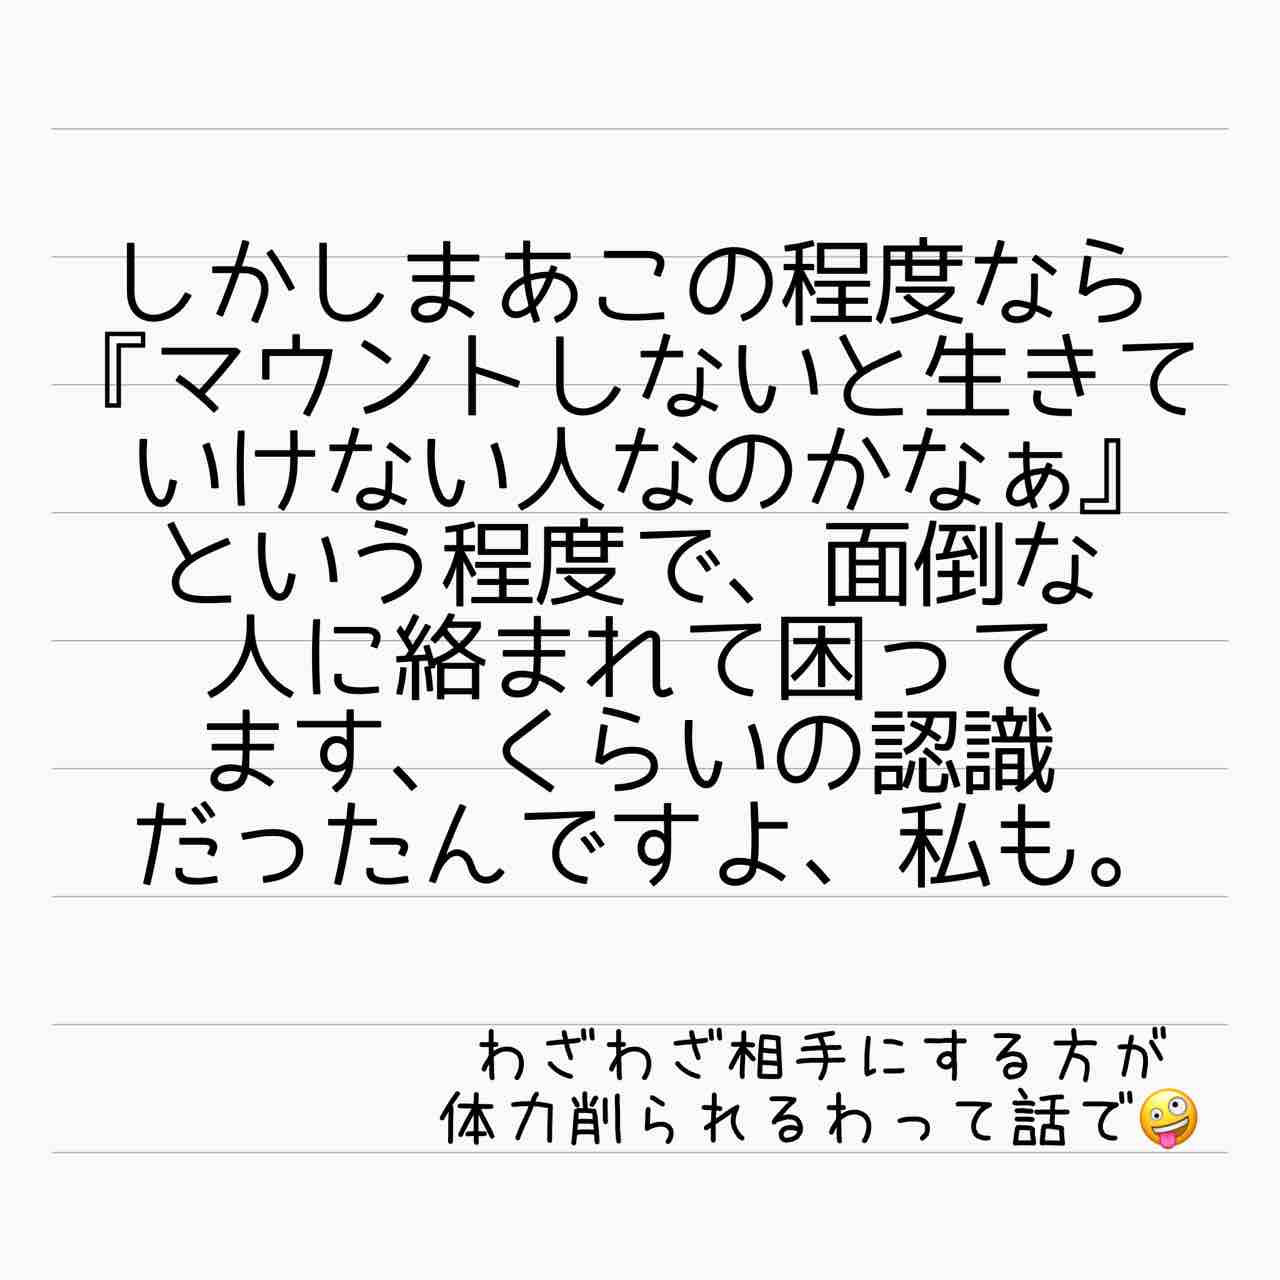 しかしまあこの程度なら
『マウントしないと生きて
いけない人なのかなぁ』
という程度で、面倒な
人に絡まれて困って
ます、くらいの認識
だったんですよ、私も。
わざわざ相手にする方が
体力削られるわって話で🤪